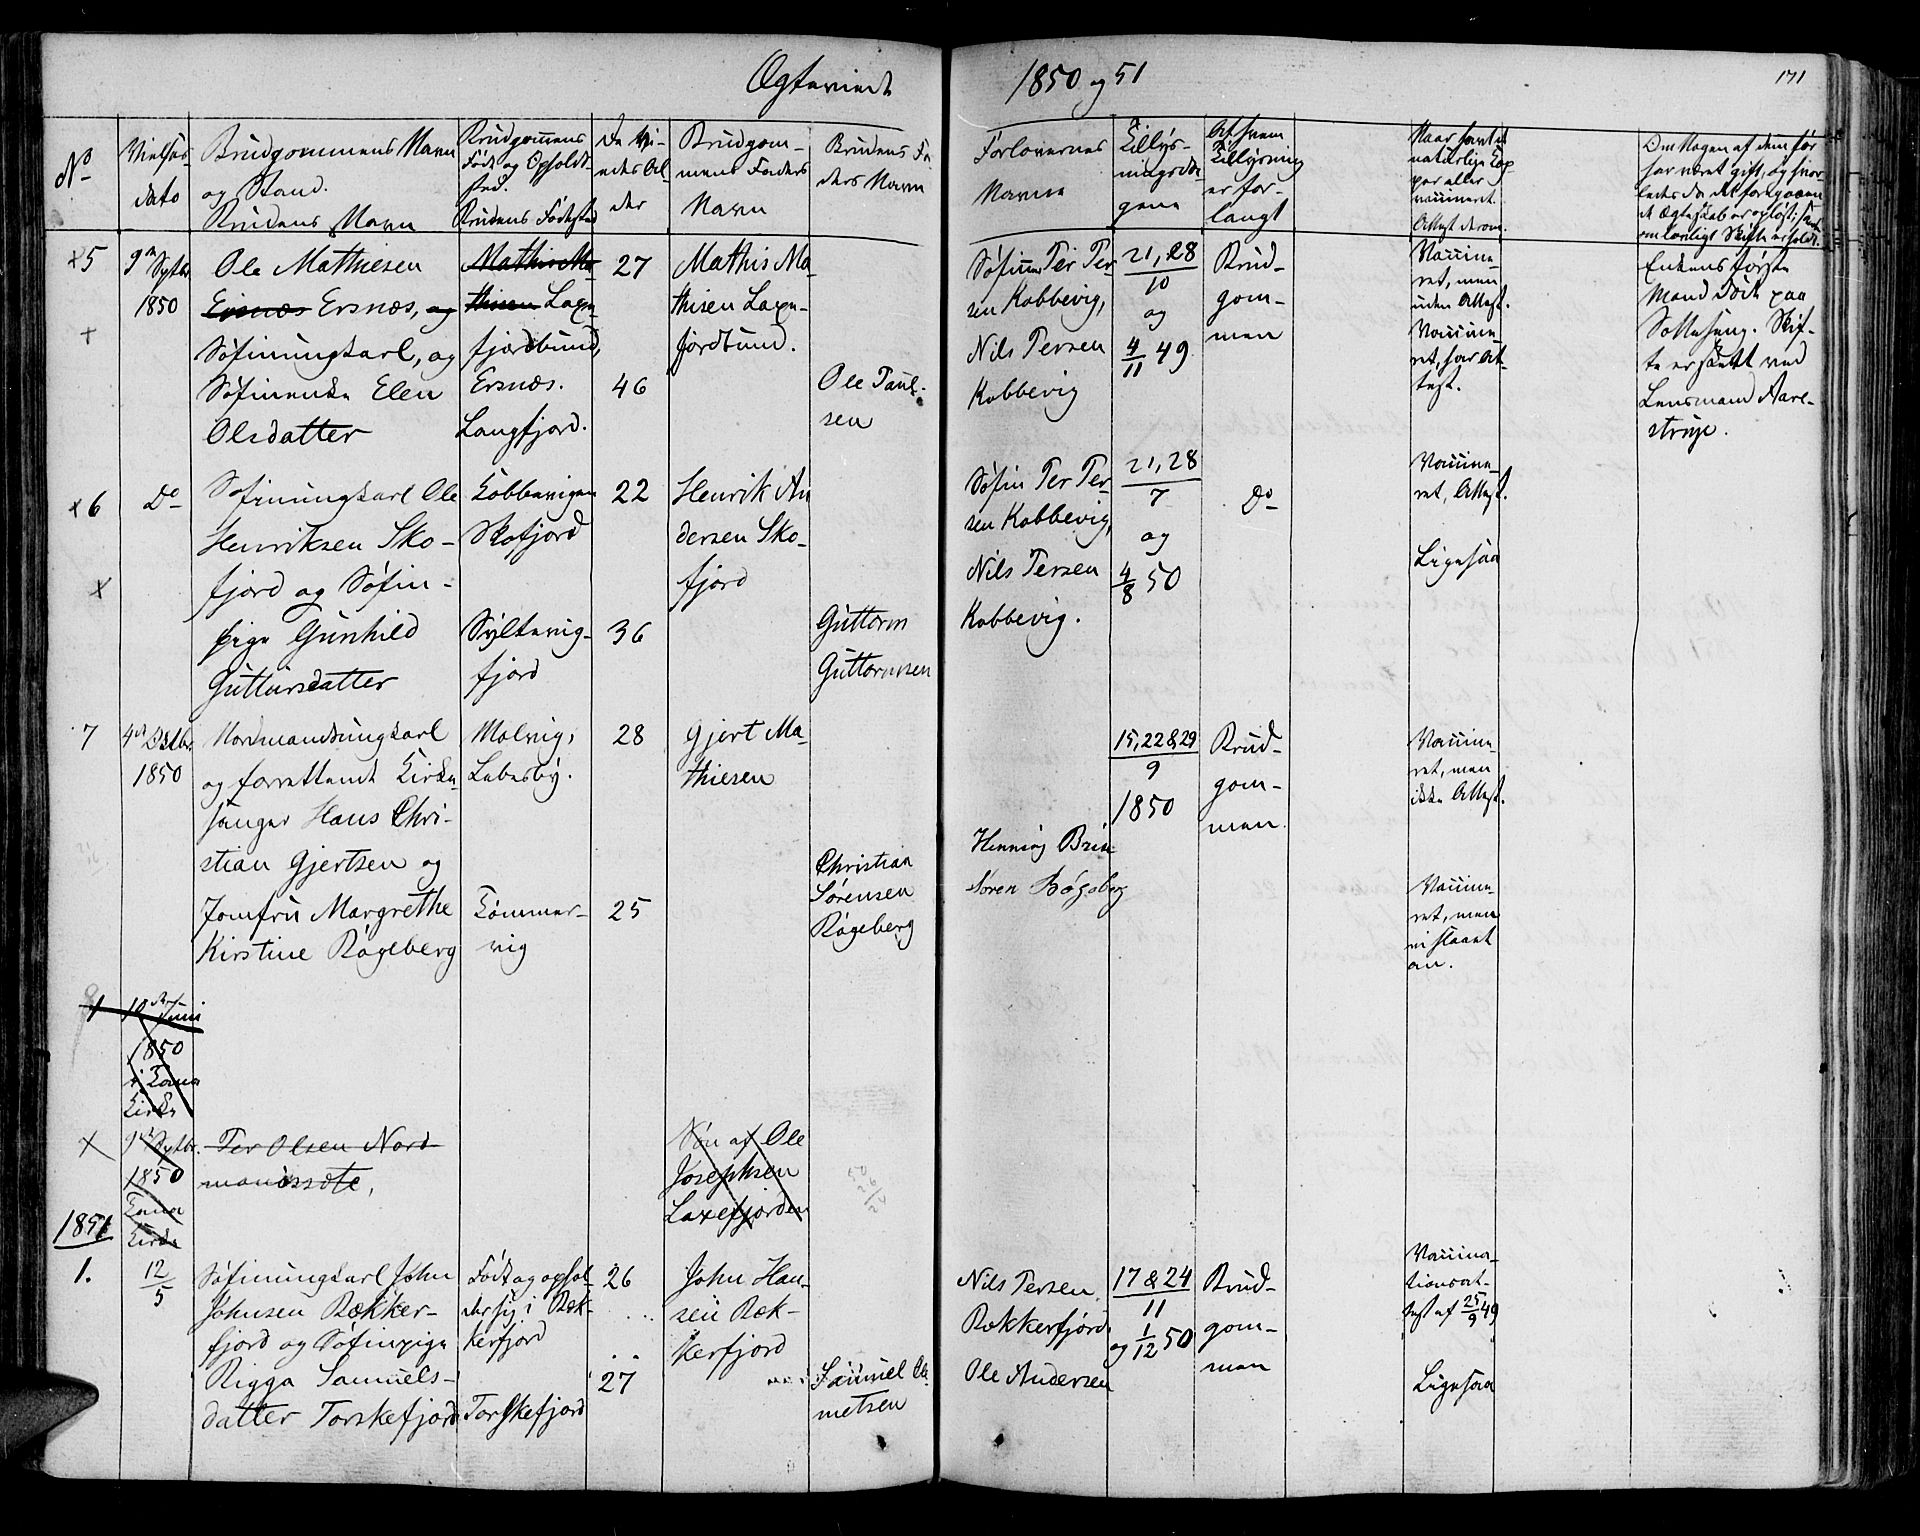 Ægteviede
1850 og 51
171
No
Vielses-
dato
Brudgommens Navn
og Stand.
Brudens Navn
Brudgommens
Født og Opholdt-
sted.
Brudens Fødested
De Vi-
edes Al-
der
Brudgom-
mens Faders
Navn
Brudens Fa-
ders Navn
Forlovernes
Navne
Tillys-
ningsda-
gene
Af hvem
Tillysning
er for-
langt
Naar havt de
naturlige Kop-
per eller
vaccineret.
Attest derom.
Om Nogen af dem før
har været gift, og hvor-
ledes da det foregaaen-
de Ægteskab er opløst; samt
om lovligt Skifte er holdt.
5
9de Septbr
1850
Ole Mathiesen
Ersnæs Ersnæs, og
Søfinungkarl, og
Søfinenke Elen
Olsdatter
Mathis Ma-
thisen Laxe-
fjordbund,
Ersnæs.
Langfjord.
27
46
Mathis Ma-
thisen Laxe-
fjordbund.
Ole Paul-
sen
Søfinne Per Per-
sen Kobbevig,
Nils Persen
Kobbevig
21, 28
10
og
4/11 49
Brud-
gom-
men
Vaccine-
ret, men
uden Attest.
Vaccine-
ret, har At-
test.
Enkens første
Mand Død paa
Sotteseng. Skif-
te er skeet ved
Lensmand Aare-
strup.
6
Do
Søfinungkarl Ole
Henriksen Sko-
fjord og Søfin-
pige Gunhild
Guttorsdatter
Kobbevigen
Skofjord
Syltevig-
fjord
22
36
Henrik An
dersen Sko-
fjord
Guttorm
Guttormsen
Søfin Per Per-
sen Kobbevig,
Nils Persen
Kobbevig.
21, 28
7
og
4/8 50
Do
Vaccine-
ret, Attest.
Ligesaa
7
4de Octbr
1850
Nordmandsungkarl
og forrettende Kirke-
sanger Hans Chri-
stian Gjertsen og
Jomfru Margrethe
Kirstine Røgeberg
Malvig,
Lebesby.
Tømmer-
vig
28
25
Gjert Ma-
thiesen
Christian
Sørensen
Røgeberg
Henning Brun
Søren Bøgeberg
15, 22 & 29
9
1850
Brud-
gom-
men.
Vaccine-
ret, men
ikke Attest.
Vaccine-
ret, men
vistaaet
an.
1
Juni
1850
i Tana
Kirke
9de Septbr.
1850
Tana
Kirke
Per Olsen Nord
mandssæte,
Søn af Ole
Josephsen
Laxefjorden
1851
1.
12/5
Søfinungkarl John
Johnsen Bekker-
fjord og Søfinpige
Rigga Samuels-
datter Torskefjord
Født og ophol-
der sig i Bek-
kerfjord
Torskefjord
26
27
John Han-
sen Bek-
kerfjord
Samuel Cle-
metsen
Nils Persen
Bekkerfjord.
Ole Andersen
17 & 24
11
og 1/12 50
Brud-
gom-
men
Vaccina-
tionsat-
test af 25/9 49
Ligesaa